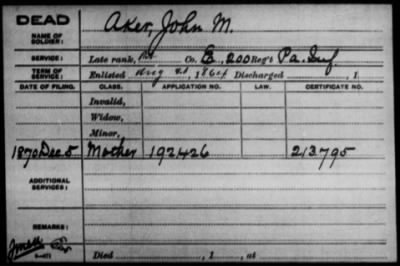 DEAD
NAME OF SOLDIER: Aker, John M.
SERVICE: Late rank, Pvt Co. E, 200 Reg't Pa. Inf
TERM OF SERVICE: Enlisted Aug 1864 Discharged , 1
DATE OF FILING. CLASS. APPLICATION NO. LAW. CERTIFICATE NO.
Invalid,
Widow,
Minor,
1870 Dec 5 Mother 192426 213795
ADDITIONAL SERVICES:
REMARKS:
Died , 1 , at